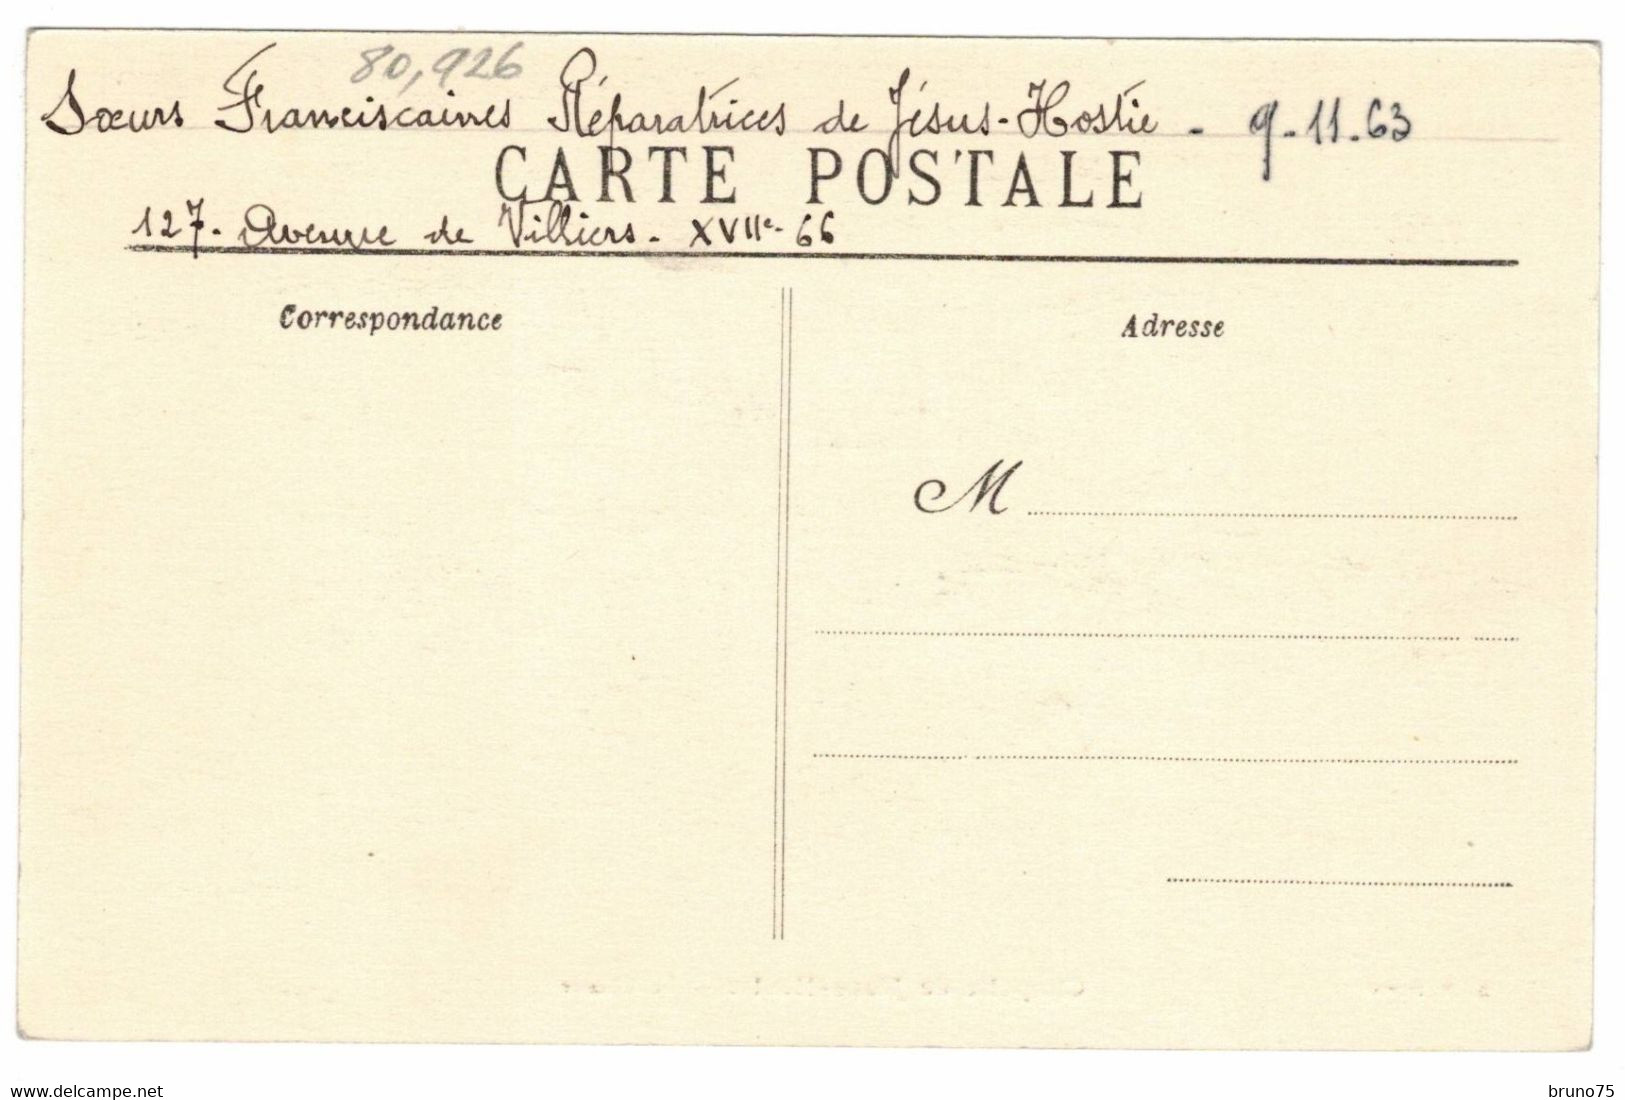 80,926
Sœurs Franciscaines Réparatrices de Jésus-Hostie - 9-11-63
CARTE POSTALE
127- Avenue de Villiers- XVIIe- 66
Correspondance
Adresse
M
www.delcampe.net
bruno75